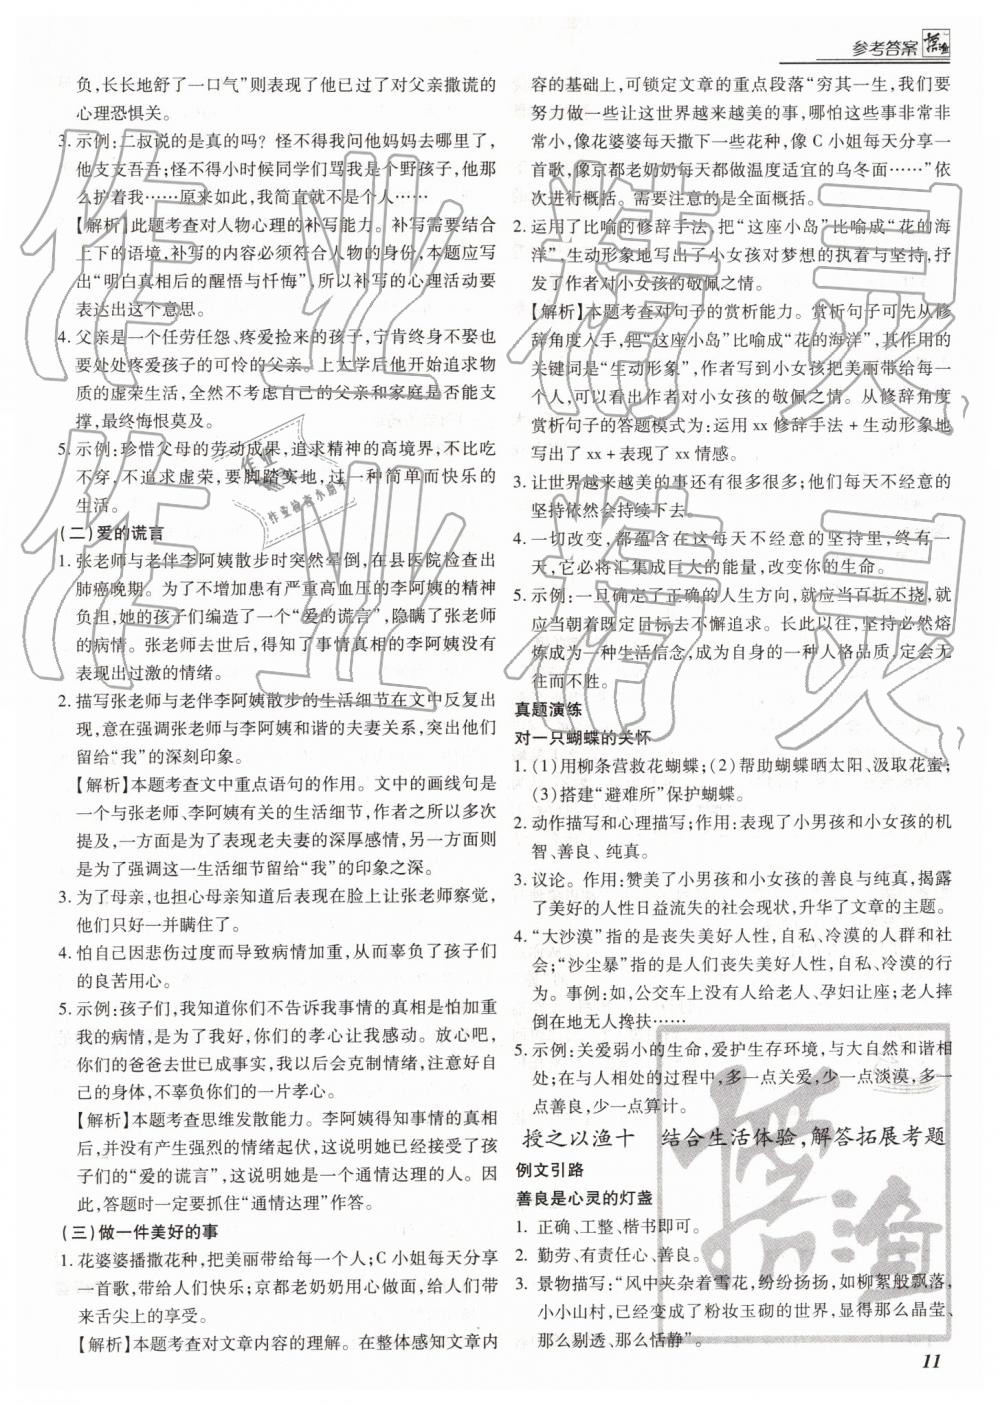 参考答案
负,长长地舒了一口气”则表现了他已过了对父亲撒谎的
心理恐惧关。
3. 示例:二叔说的是真的吗？怪不得我问他妈妈去哪了,
他支支吾吾;怪不得小时候同学们骂我是个野孩子,他那
么护着我……原来如此,我简直就不是个人……
【解析】此题考查对人物心理的补写能力。补写需要结合
上下的语境,补写的内容必须符合人物的身份,本题应写
出“明白真相后的醒悟与忏悔”,所以补写的心理活动要
表达出这个意思。
4. 父亲是一个任劳任怨、疼爱捡来的孩子,宁肯终身不娶也
要处处疼爱孩子的可怜的父亲。上大学后他开始追求物
质的虚荣生活,全然不考虑自己的父亲和家庭是否能支
撑,最终悔恨莫及。
5. 示例:珍惜父母的劳动成果,追求精神的高境界,不比吃
不穿,不追求虚荣,要脚踏实地,过一种简单而快乐的
生活。
(二)爱的谎言
1. 张老师与老伴李阿姨散步时突然晕倒,在县医院检查出
肺癌晚期。为了不增加患有严重高血压的李阿姨的精神
负担,她的孩子们编造了一个“爱的谎言”,隐瞒了张老师
的病情。张老师去世后,得知了事情真相的李阿姨没有
表现出过激的情绪。
2. 描写张老师与老伴李阿姨散步的生活细节在文中反复出
现,意在强调张老师与李阿姨和谐的夫妻关系,突出他们
留给“我”的深刻印象。
【解析】本题考查文中重点语句的作用。文中的画线句是
一个与张老师、李阿姨有关的生活细节,作者之所以多次
提及,一方面是为了表现老夫妻的深厚感情,另一方面则
是为了强调这一生活细节留给“我”的印象之深。
3. 为了母亲,也担心母亲知道后表现在脸上让张老师察觉,
他们只好一并瞒住了。
4. 怕自己因悲伤过度而导致病情加重,从而辜负了孩子们
的良苦用心。
5. 示例:孩子们,我知道你们不告诉我事情的真相是怕加重
我的病情,是为了我好,你们的孝心让我感动。放心吧,
你们的爸爸去世已成事实,我以后会克制情绪,注意好自
己的身体,不辜负你们的一片孝心。
【解析】本题考查思维发散能力。李阿姨得知事情的真相
后,并没有产生强烈的情绪起伏,这说明她已经接受了孩
子们的“爱的谎言”,这说明她是一个通情达理的人。因
此,答题时一定要抓住“通情达理”作答。
(三)做一件美好的事
1. 花婆婆播撒花种,把美丽带给每一个人;C 小姐每天分享
一首歌,带给人们快乐;京都老奶奶用心做面,给人们带
来舌尖上的享受。
【解析】本题考查对文章内容的理解。在整体感知文章内
容的基础上,可锁定文章的重点段落“穷其一生,我们要
努力做一些让这世界越来越美的事,哪怕这些事非常非
常小,像花婆婆每天撒下一些花种,像 C 小姐每天分享一
首歌,像京都老奶奶每天都做温度适宜的乌冬面……”依
次进行概括。需要注意的是全面概括。
2. 运用了比喻的修辞手法,把“这座小岛”比喻成“花的海
洋”,生动形象地写出了小女孩对梦想的执着与坚持,抒
发了作者对小女孩的敬佩之情。
【解析】本题考查对句子的赏析能力。赏析句子可先从修
辞角度入手,把“这座小岛”比喻成“花的海洋”,其作用的
关键词是“生动形象”,作者写到小女孩把美丽带给每一
个人,可以看出作者对小女孩的敬佩之情。从修辞角度
赏析句子的答题模式为:运用 xx 修辞手法 + 生动形象地
写出了 xx + 表现了 xx 情感。
3. 让世界越来越美的事还有很多很多;他们每天不经意的
坚持依然会持续下去。
4. 一切改变,都蕴含在这每天不经意的坚持里,终有一
天,它必将汇集成巨大的能量,改变你的生命。
5. 示例:一旦确定了正确的人生方向,就应当百折不挠,就
应当朝着既定目标去不懈追求。长此以往,坚持必然熔
炼成为一种生活信念,成为自身的一种人格品质,定会无
往而不胜。
真题演练
对一只蝴蝶的关怀
1. (1)用柳条营救花蝴蝶;(2)帮助蝴蝶晒太阳、汲取花蜜;
(3)搭建“避难所”保护蝴蝶。
2. 动作描写和心理描写;作用:表现了小男孩和小女孩的机
智、善良、纯真。
3. 议论。作用:赞美了小男孩和小女孩的善良与纯真,揭露
了美好的人性日益流失的社会现状,升华了文章的主题。
4. “大沙漠”指的是丧失美好人性,自私、冷漠的人群和社
会;“沙尘暴”指的是人们丧失美好人性,自私、冷漠的行
为。事例:如,公交车上没有人给老人、孕妇让座;老人摔
倒在地无人搀扶……
5. 示例:关爱弱小的生命,爱护生存环境,与大自然和谐相
处;在与人相处的过程中,多一点关爱,少一点淡漠,多一
点善良,少一点算计。
授之以渔十　结合生活体验,解答拓展考题
例文引路
善良是心灵的灯盏
1. 正确、工整、楷书即可。
2. 勤劳、有责任心、善良。
3. 景物描写:“风中夹杂着雪花,纷纷扬扬,如柳絮般飘落,
小小山村,已经变成了粉妆玉砌的世界,显得那么晶莹、
那么剔透、那么恬静”。
11
作业精灵
作业精灵